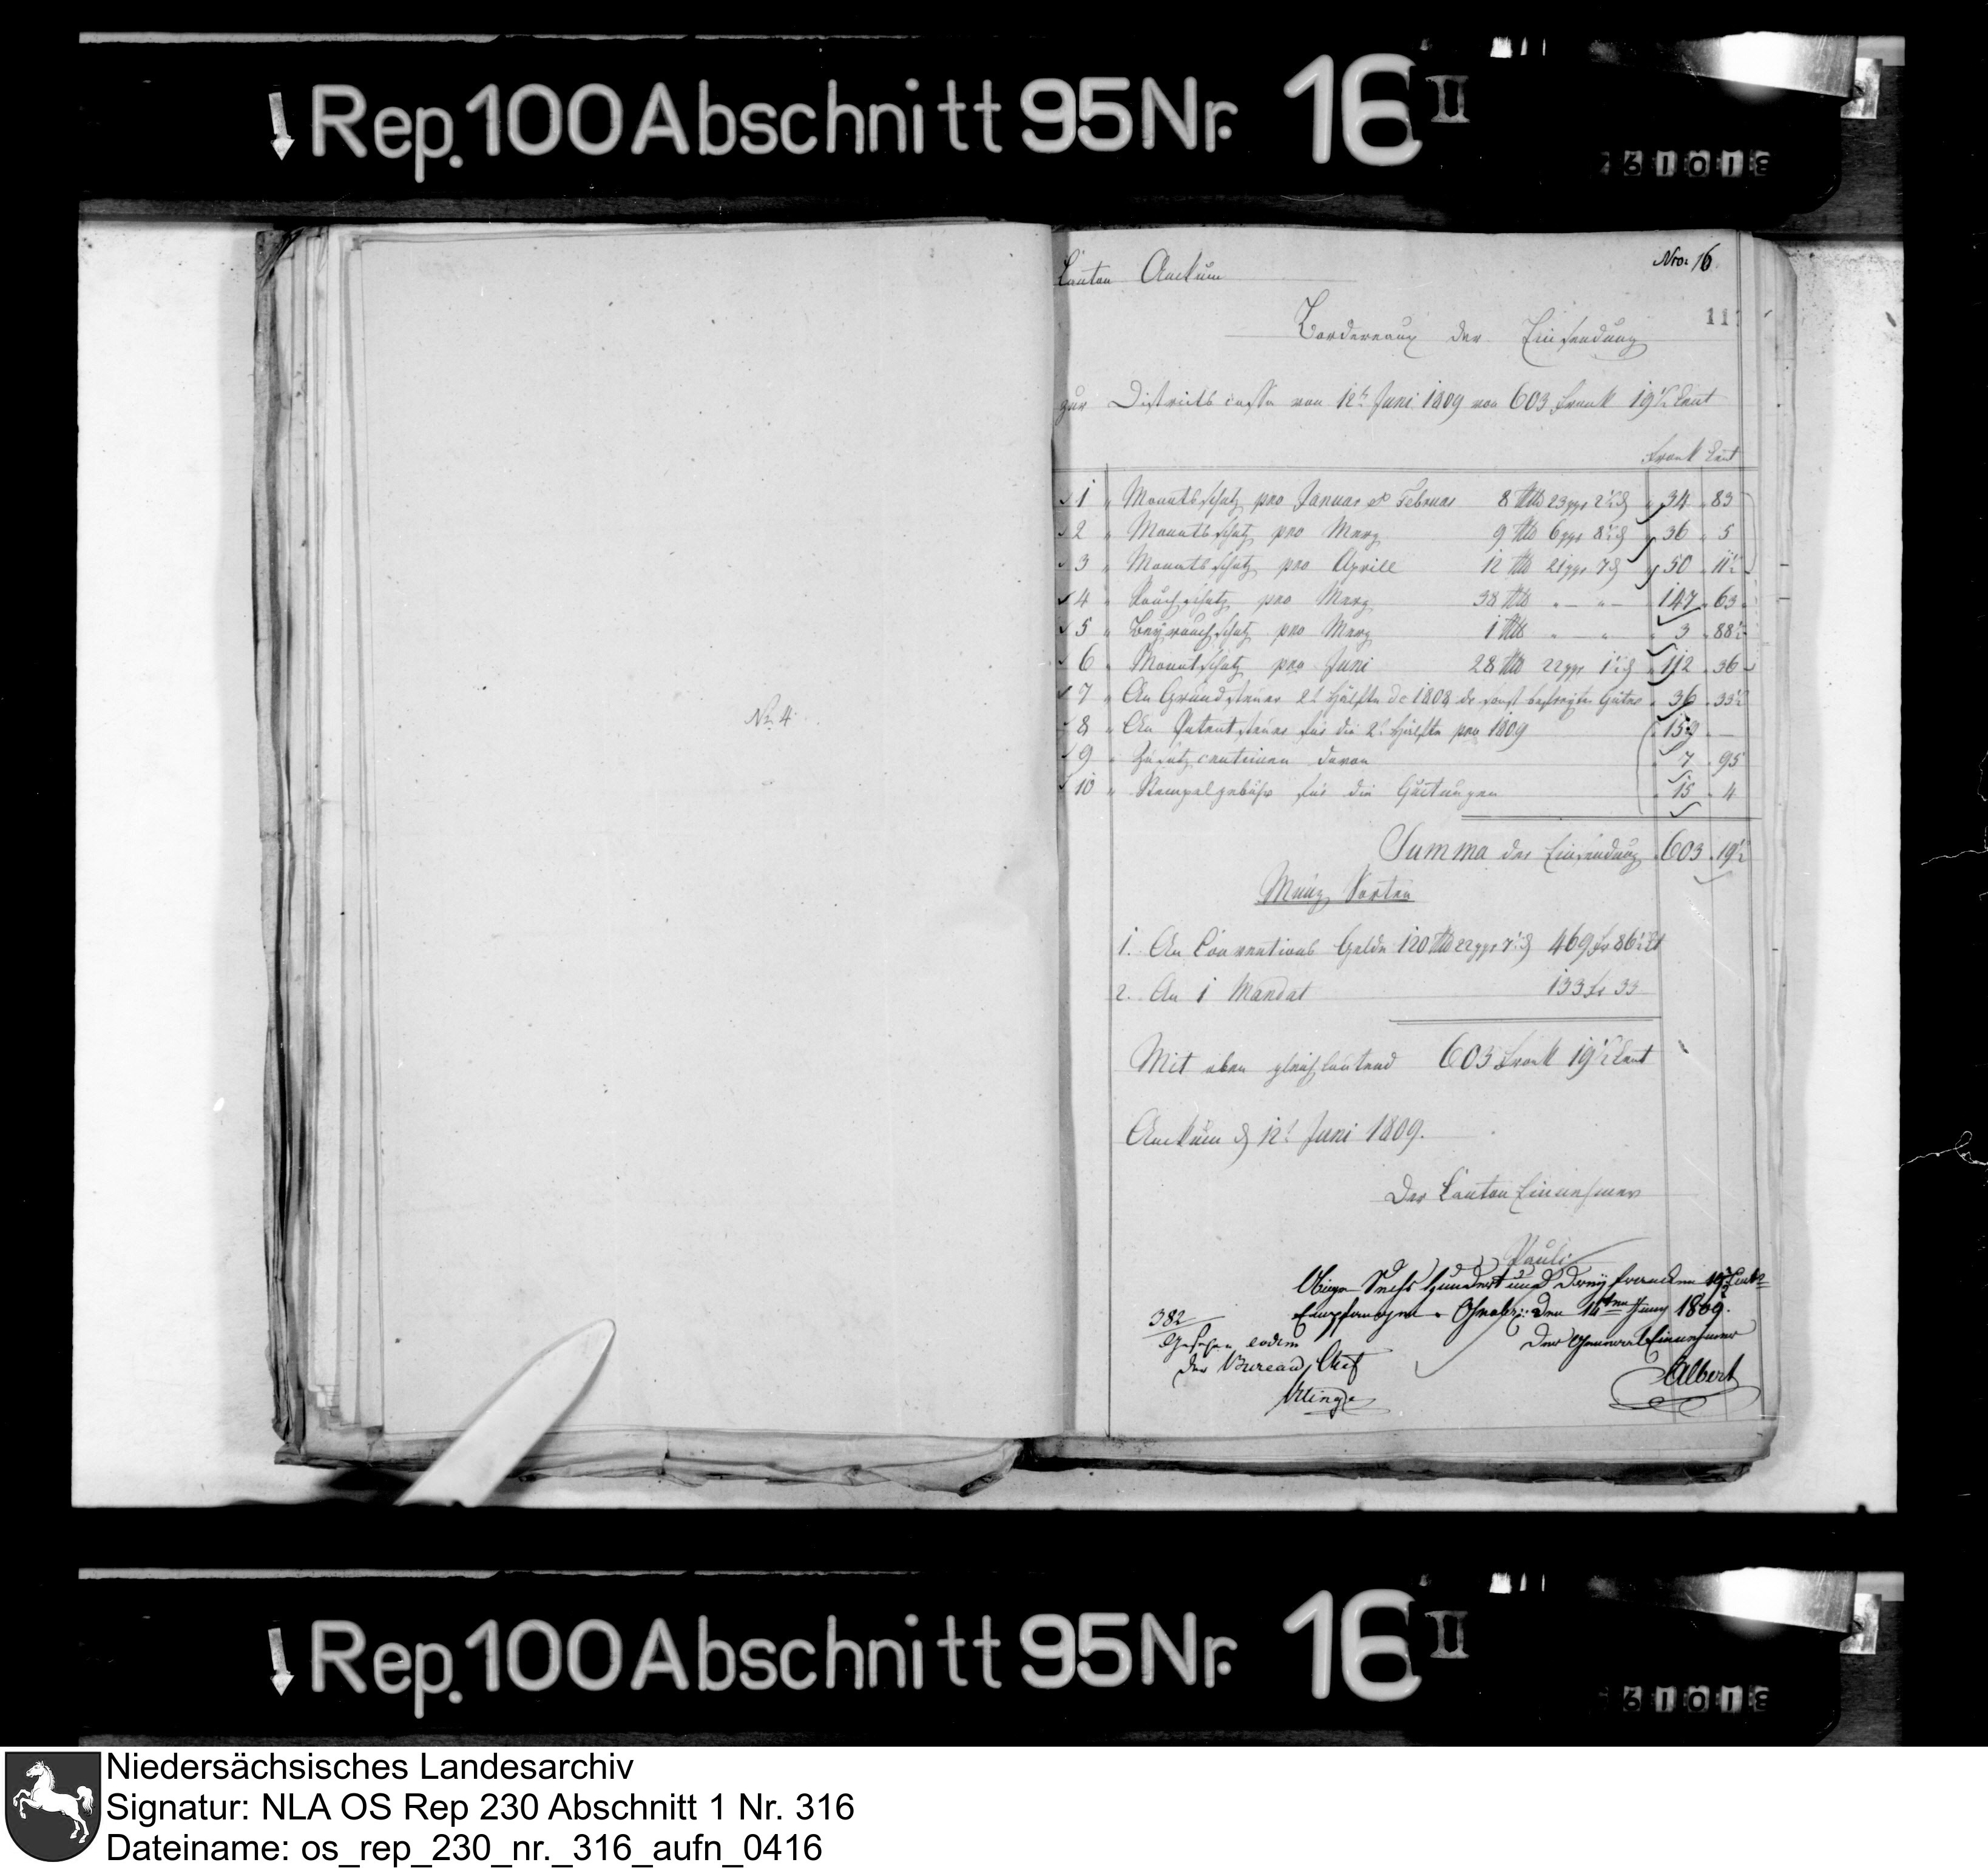 Rep. 100 Abschnitt 95 Nr. 16 II
61018
Nro: 16
Canton Anckum
11
Bordereaux der Einsendung
zur Districts casse von 12t Juni 1809 von 603 Frank 19 1/2 Cent
Frank Cent
1 " Monatsschatz pro Januar et Februar 8 Rtlr 23 ggr 2 1/2 d " 34 " 83
2 " Monatsschatz pro Merz 9 Rtlr 6 ggr 8 1/2 d " 36 " 5
3 " Monatsschatz pro Aprill 12 Rtlr 21 ggr 7 d " 50 " 11 1/2
4 " Rauchschatz pro Merz 38 Rtlr " — " — " 147 " 63
5 " Beyrauchschatz pro Merz 1 Rtlr " — " " 3 " 88 1/2
6 " Monatschatz pro Juni 28 Rtlr 22 ggr 1 1/2 d " 112 " 36
7 " An Grundsteuer 2t Hälfte de 1808 der sonst befreyten Güter " 36 " 33 1/2
8 " An Patentsteuer für die 2t Hälfte pro 1809 " 159 " —
9 " Zusatz centimen davon " 7 " 95
10 " Stempelgebühr für die Quitungen " 15 " 4
Summa der Einsendung 603 " 19 1/2
Münz Sorten
1. An Conventions Gelde 120 Rtlr 22 ggr 7 1/2 d 469 Fr 86 1/2 Ct
2. An 1 Mandat 133 Fr 33
Mit oben gleichlautend 603 Frank 19 1/2 Cent
Anckum d 12t Juni 1809.
Der Canton Einnehmer
Pauli
Obige Sechs hundert und drey Francken 19 1/2 Cent
Empfangen Osnabr: den 14ten Juny 1809.
382
Gesehen eodem
der General Einnehmer
der Bureau Chef
Albert
No 4
Rep. 100 Abschnitt 95 Nr. 16 II
61018
Niedersächsisches Landesarchiv
Signatur: NLA OS Rep 230 Abschnitt 1 Nr. 316
Dateiname: os_rep_230_nr._316_aufn_0416